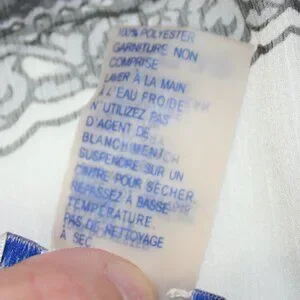 100% POLYESTER
GARNITURE NON
COMPRISE
LAVER À LA MAIN
À L'EAU FROIDE
N'UTILIZEZ PAS
D'AGENT DE
BLANCHIMENT
SUSPENDRE SUR UN
CINTRE POUR SÉCHER
REPASSEZ À BASSE
TEMPÉRATURE.
PAS DE NETTOYAGE
À SEC